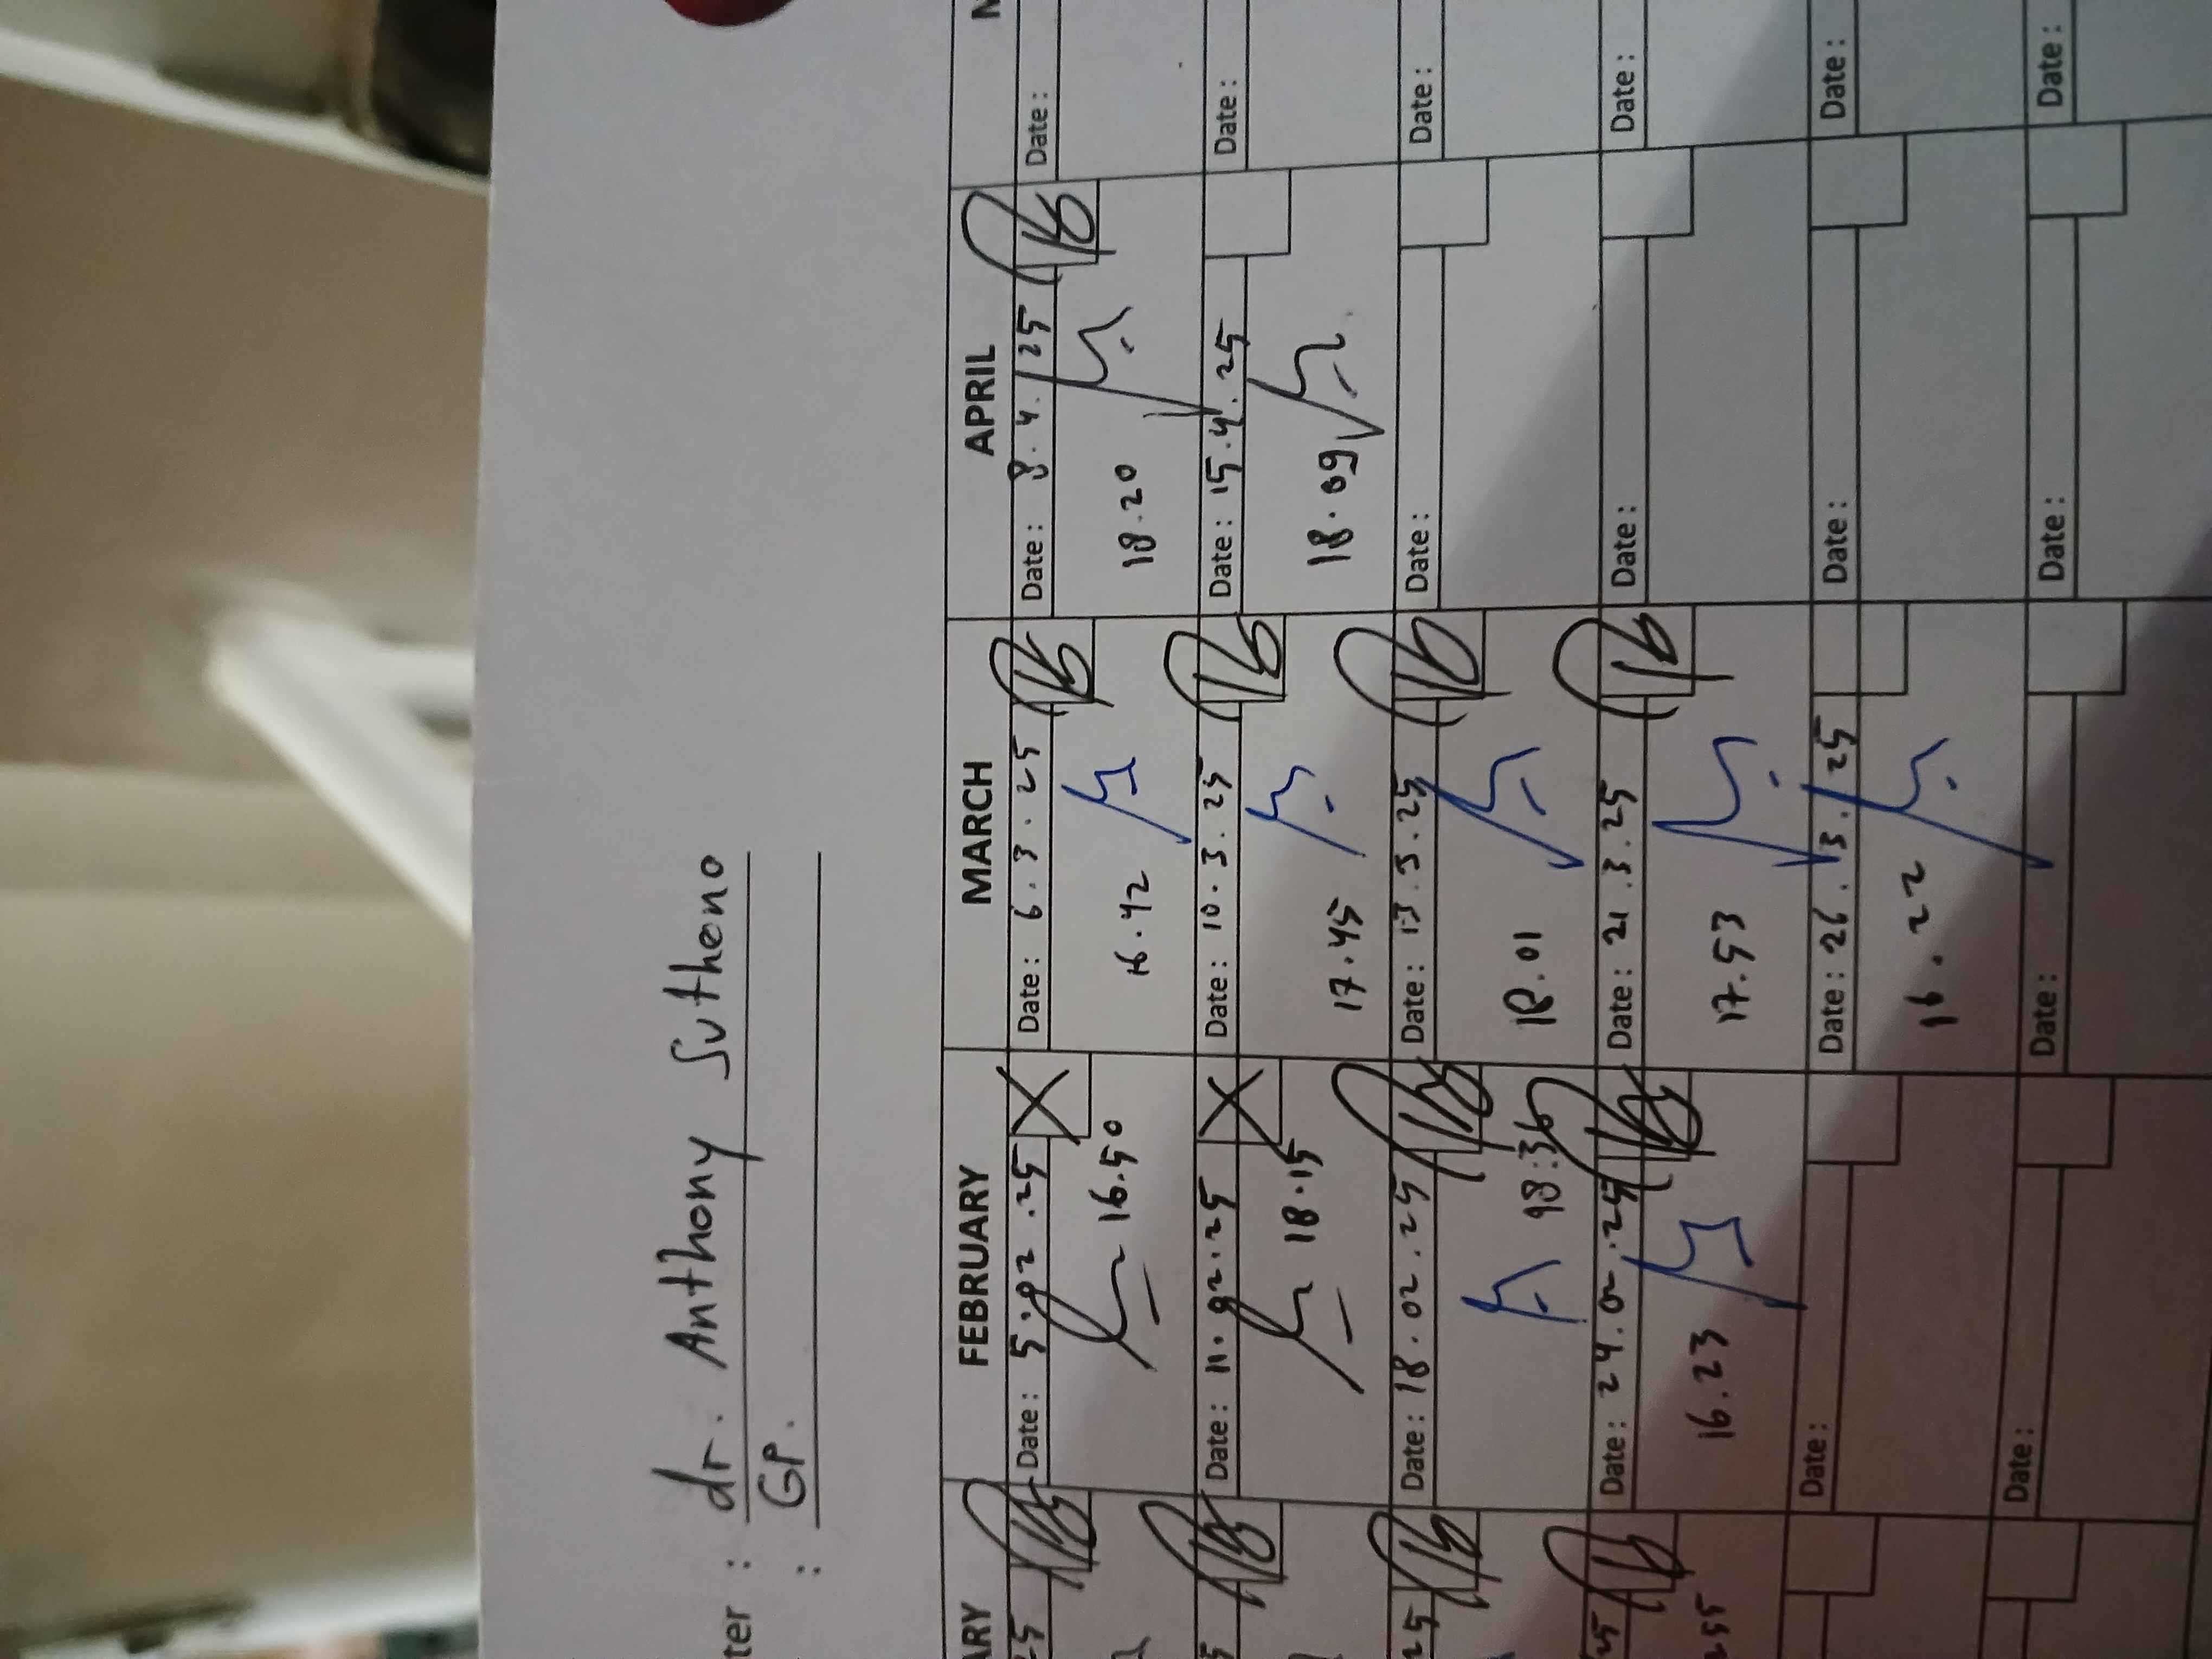 ter : dr. Anthony Sutheno
: GP.
ARY FEBRUARY MARCH APRIL
25 Date: 5.02.25 Date: 6.3.25 Date: 8.4.25 Date:
16.50 16.42 18.20
Date: 11.02.25 Date: 10.3.25 Date: 15.4.25 Date:
18.15 17.45 18.09
25 Date: 18.02.25 Date: 13.3.25 Date: Date:
18:36 18.01
25 Date: 24.02.25 Date: 21.3.25 Date: Date:
16.23 17.53
Date: Date: 26.3.25 Date: Date:
16.22
Date: Date: Date: Date: